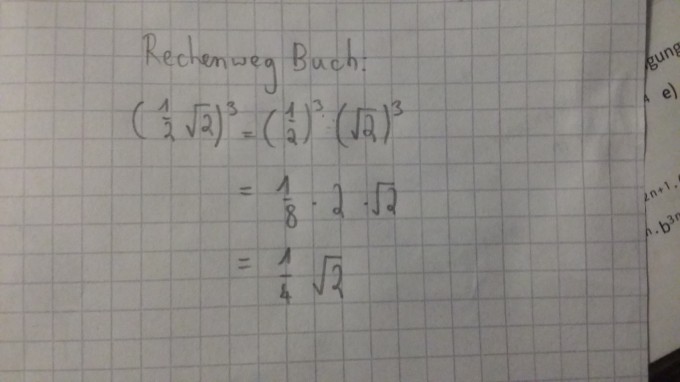 Rechenweg Buch:
(1/2 √2)³ = (1/2)³ · (√2)³
= 1/8 · 2 · √2
= 1/4 √2
gung
e)
2n+1